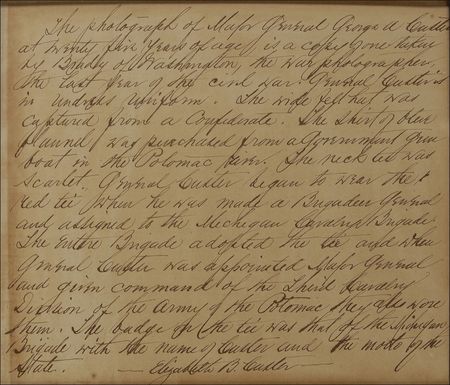 The photograph of Major General George A Custer
at twenty five years of age, is a copy of one taken
by Brady of Washington, the war photographer,
the last year of the civil war. General Custer is
in undress uniform. The wide felt hat was
captured from a Confederate. The shirt of blue
flannel was purchased from a Government gun
boat in the Potomac River. The neck tie was
scarlet. General Custer began to wear the
red tie when he was made a Brigadier General
and assigned to the Michigan Cavalry Brigade
The entire Brigade adopted the tie and when
General Custer was appointed Major General
and given command of the Third Cavalry
Division of the Army of the Potomac they also wore
them. The badge on the tie was that of the Michigan
Brigade with the name of Custer and the motto of the
State. — Elizabeth B. Custer